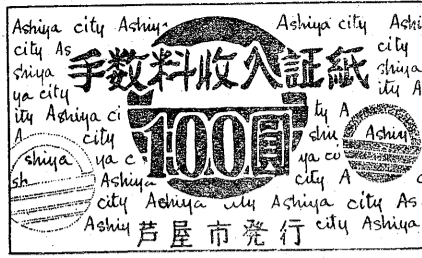 Ashiya city Ashiya Ashiya city Ashi
city As city
shiya 手数料収入証紙 shiya
ya city ity A
ity Ashiya ci ty A
A city 100圓 shi Ashiy
shiya ya c ya ci
sh Ashiya city A
city Ashiya city Ashiya city As
Ashiy 芦屋市発行 city Ashiya